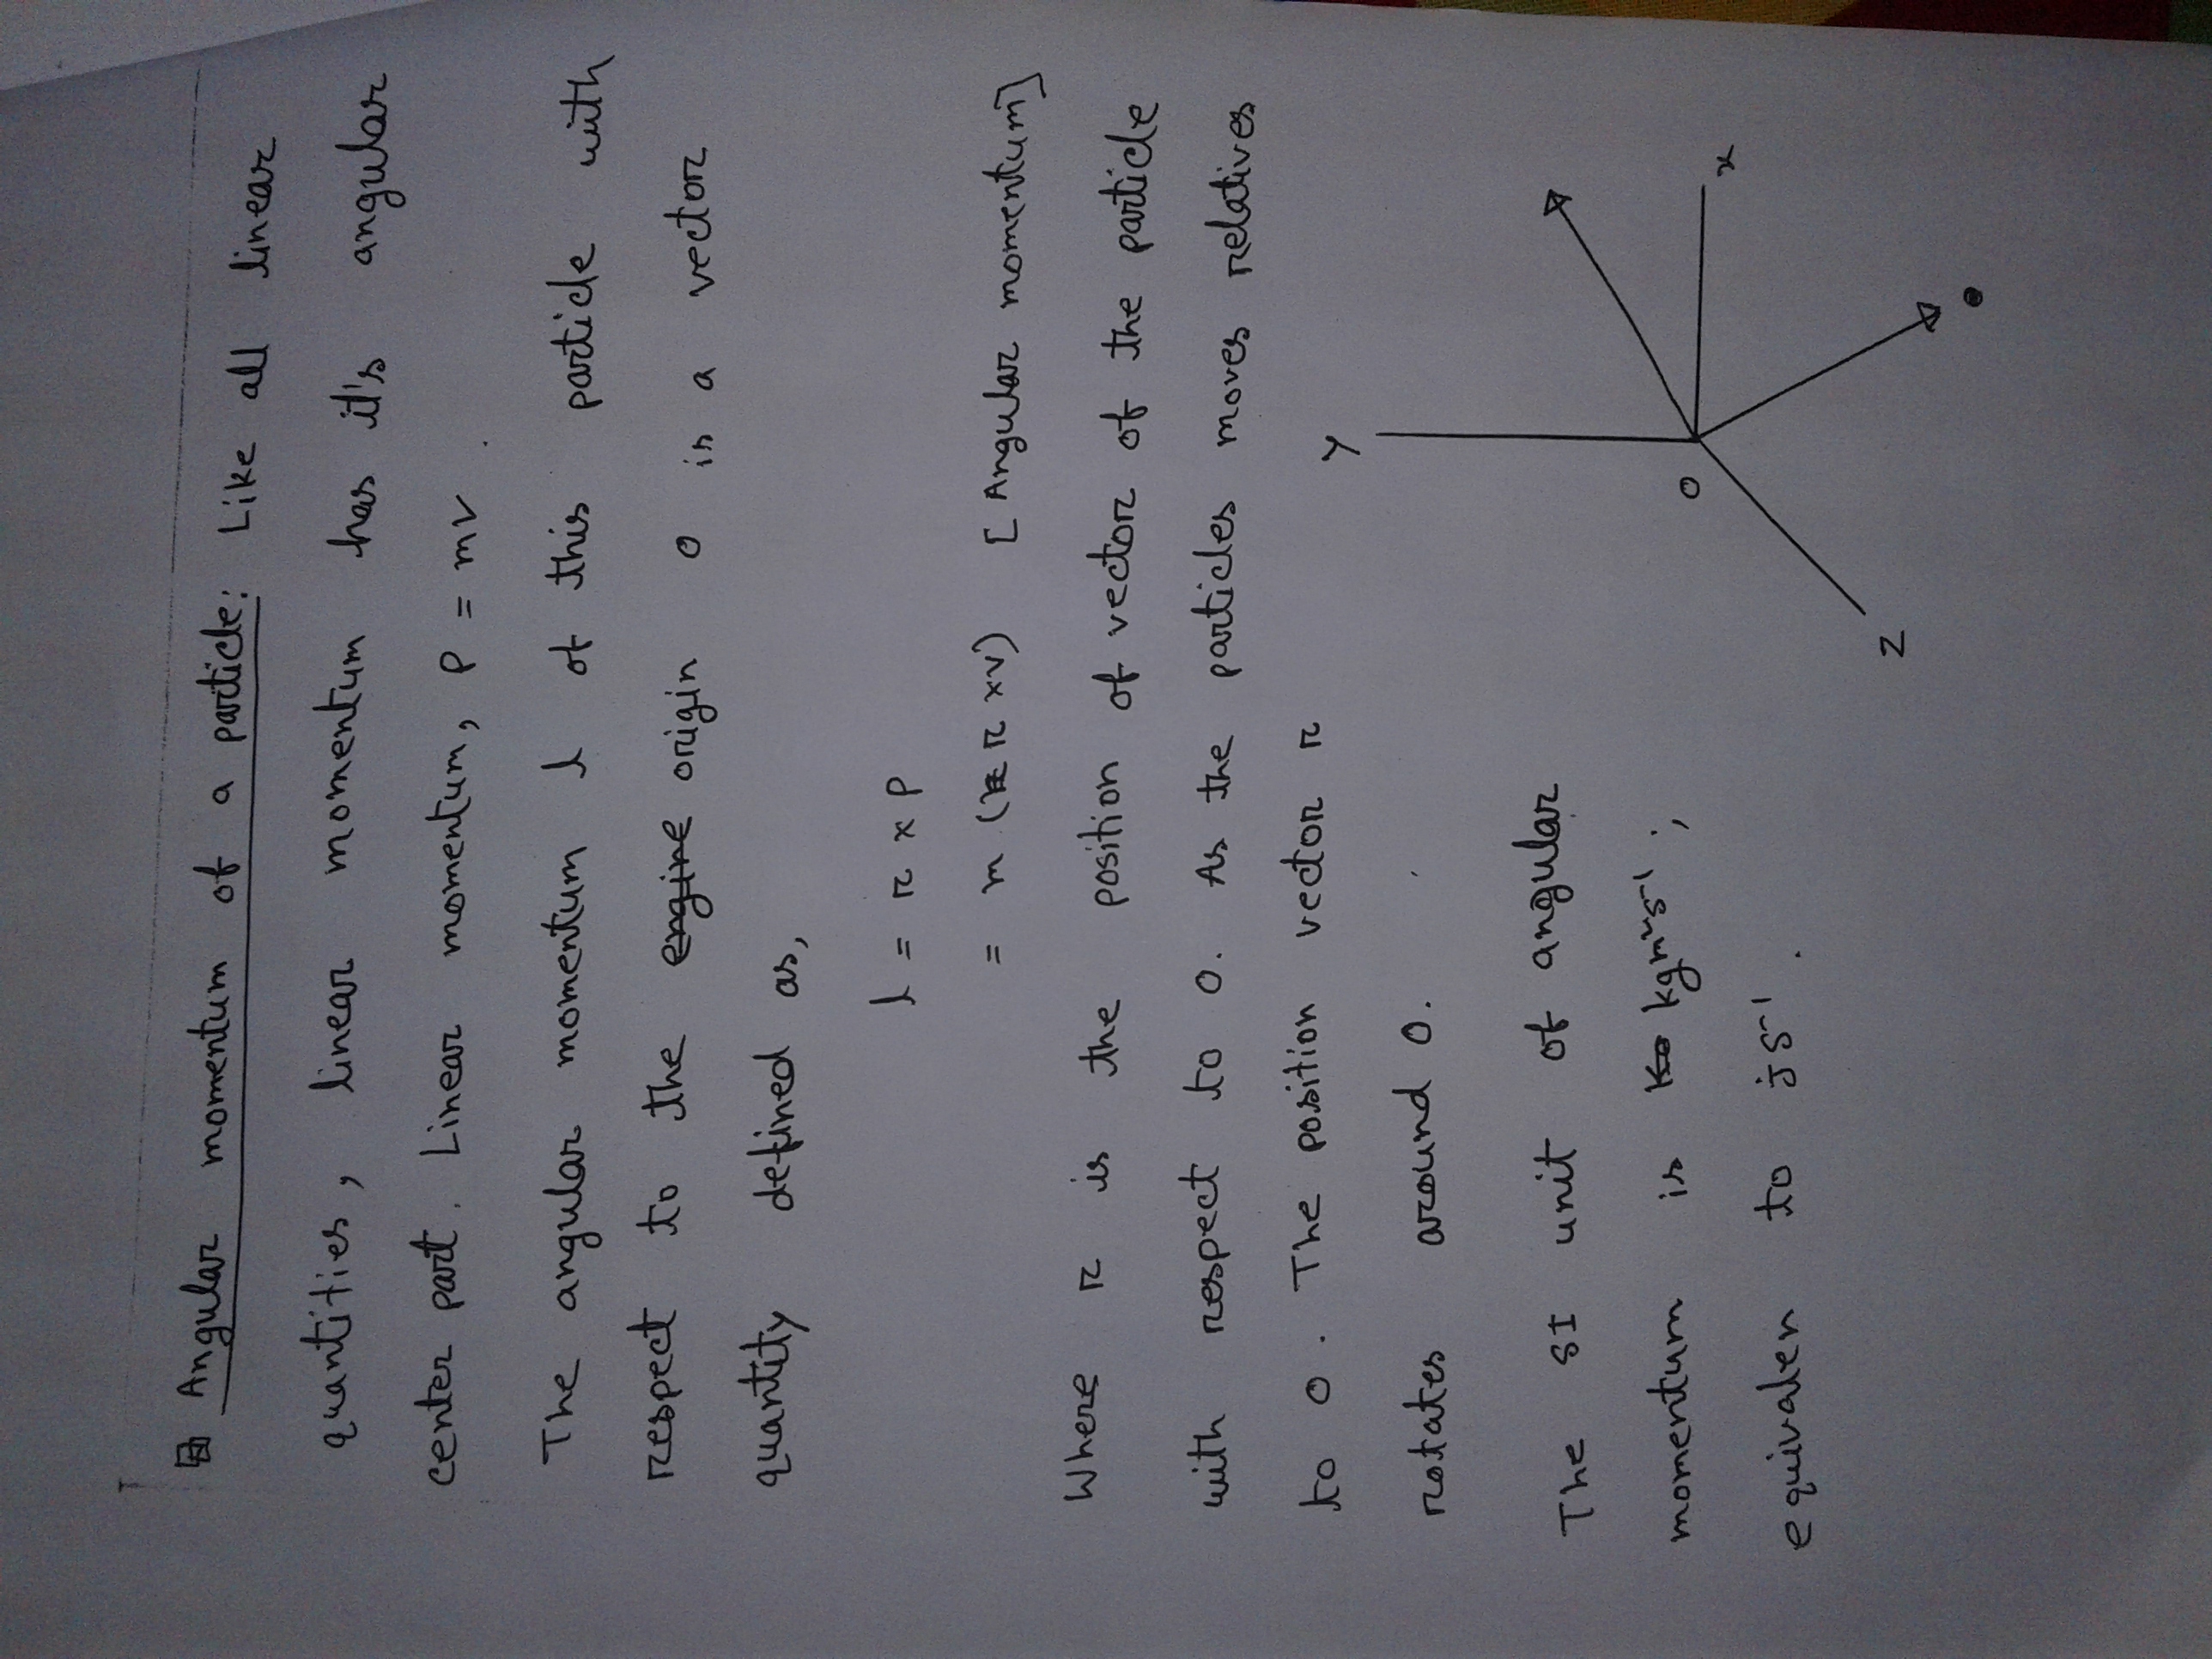 Angular momentum of a particle: Like all linear
quantities, linear momentum has it's angular
center part. Linear momentum, P = mv.
The angular momentum l of this particle with
respect to the engine origin o is a vector
quantity defined as,
l = r x p
= m (r r xv) [Angular momentum]
Where r is the position of vector of the particle
with respect to o. As the particles moves relatives
to o. The position vector r
rotates around o.
The SI unit of angular
momentum is kgm²s⁻¹;
equivalen to js⁻¹.
Y
O
x
Z